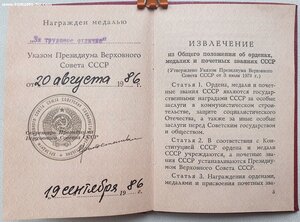 Награжден медалью
"За трудовое отличие"
Указом Президиума Верховного
Совета СССР
от 20 августа 1986 г.
Секретарь Президиума
19 сентября 1986 г.
ИЗВЛЕЧЕНИЕ
из Общего положения об орденах,
медалях и почетных званиях СССР
(Утверждено Указом Президиума Верховного
Совета СССР от 3 июля 1979 г.)
Статья 1. Ордена, медали и почет-
ные звания СССР являются государствен-
ными наградами СССР за особые
заслуги в коммунистическом строи-
тельстве, защите социалистического
Отечества, а также за иные особые
заслуги перед Советским государством
и обществом.
Статья 2. В соответствии с Консти-
туцией СССР ордена и медали
СССР учреждаются, а почетные зва-
ния СССР устанавливаются Президиу-
мом Верховного Совета СССР.
Статья 3. Награждения орденами,
медалями и присвоение почетных зва-